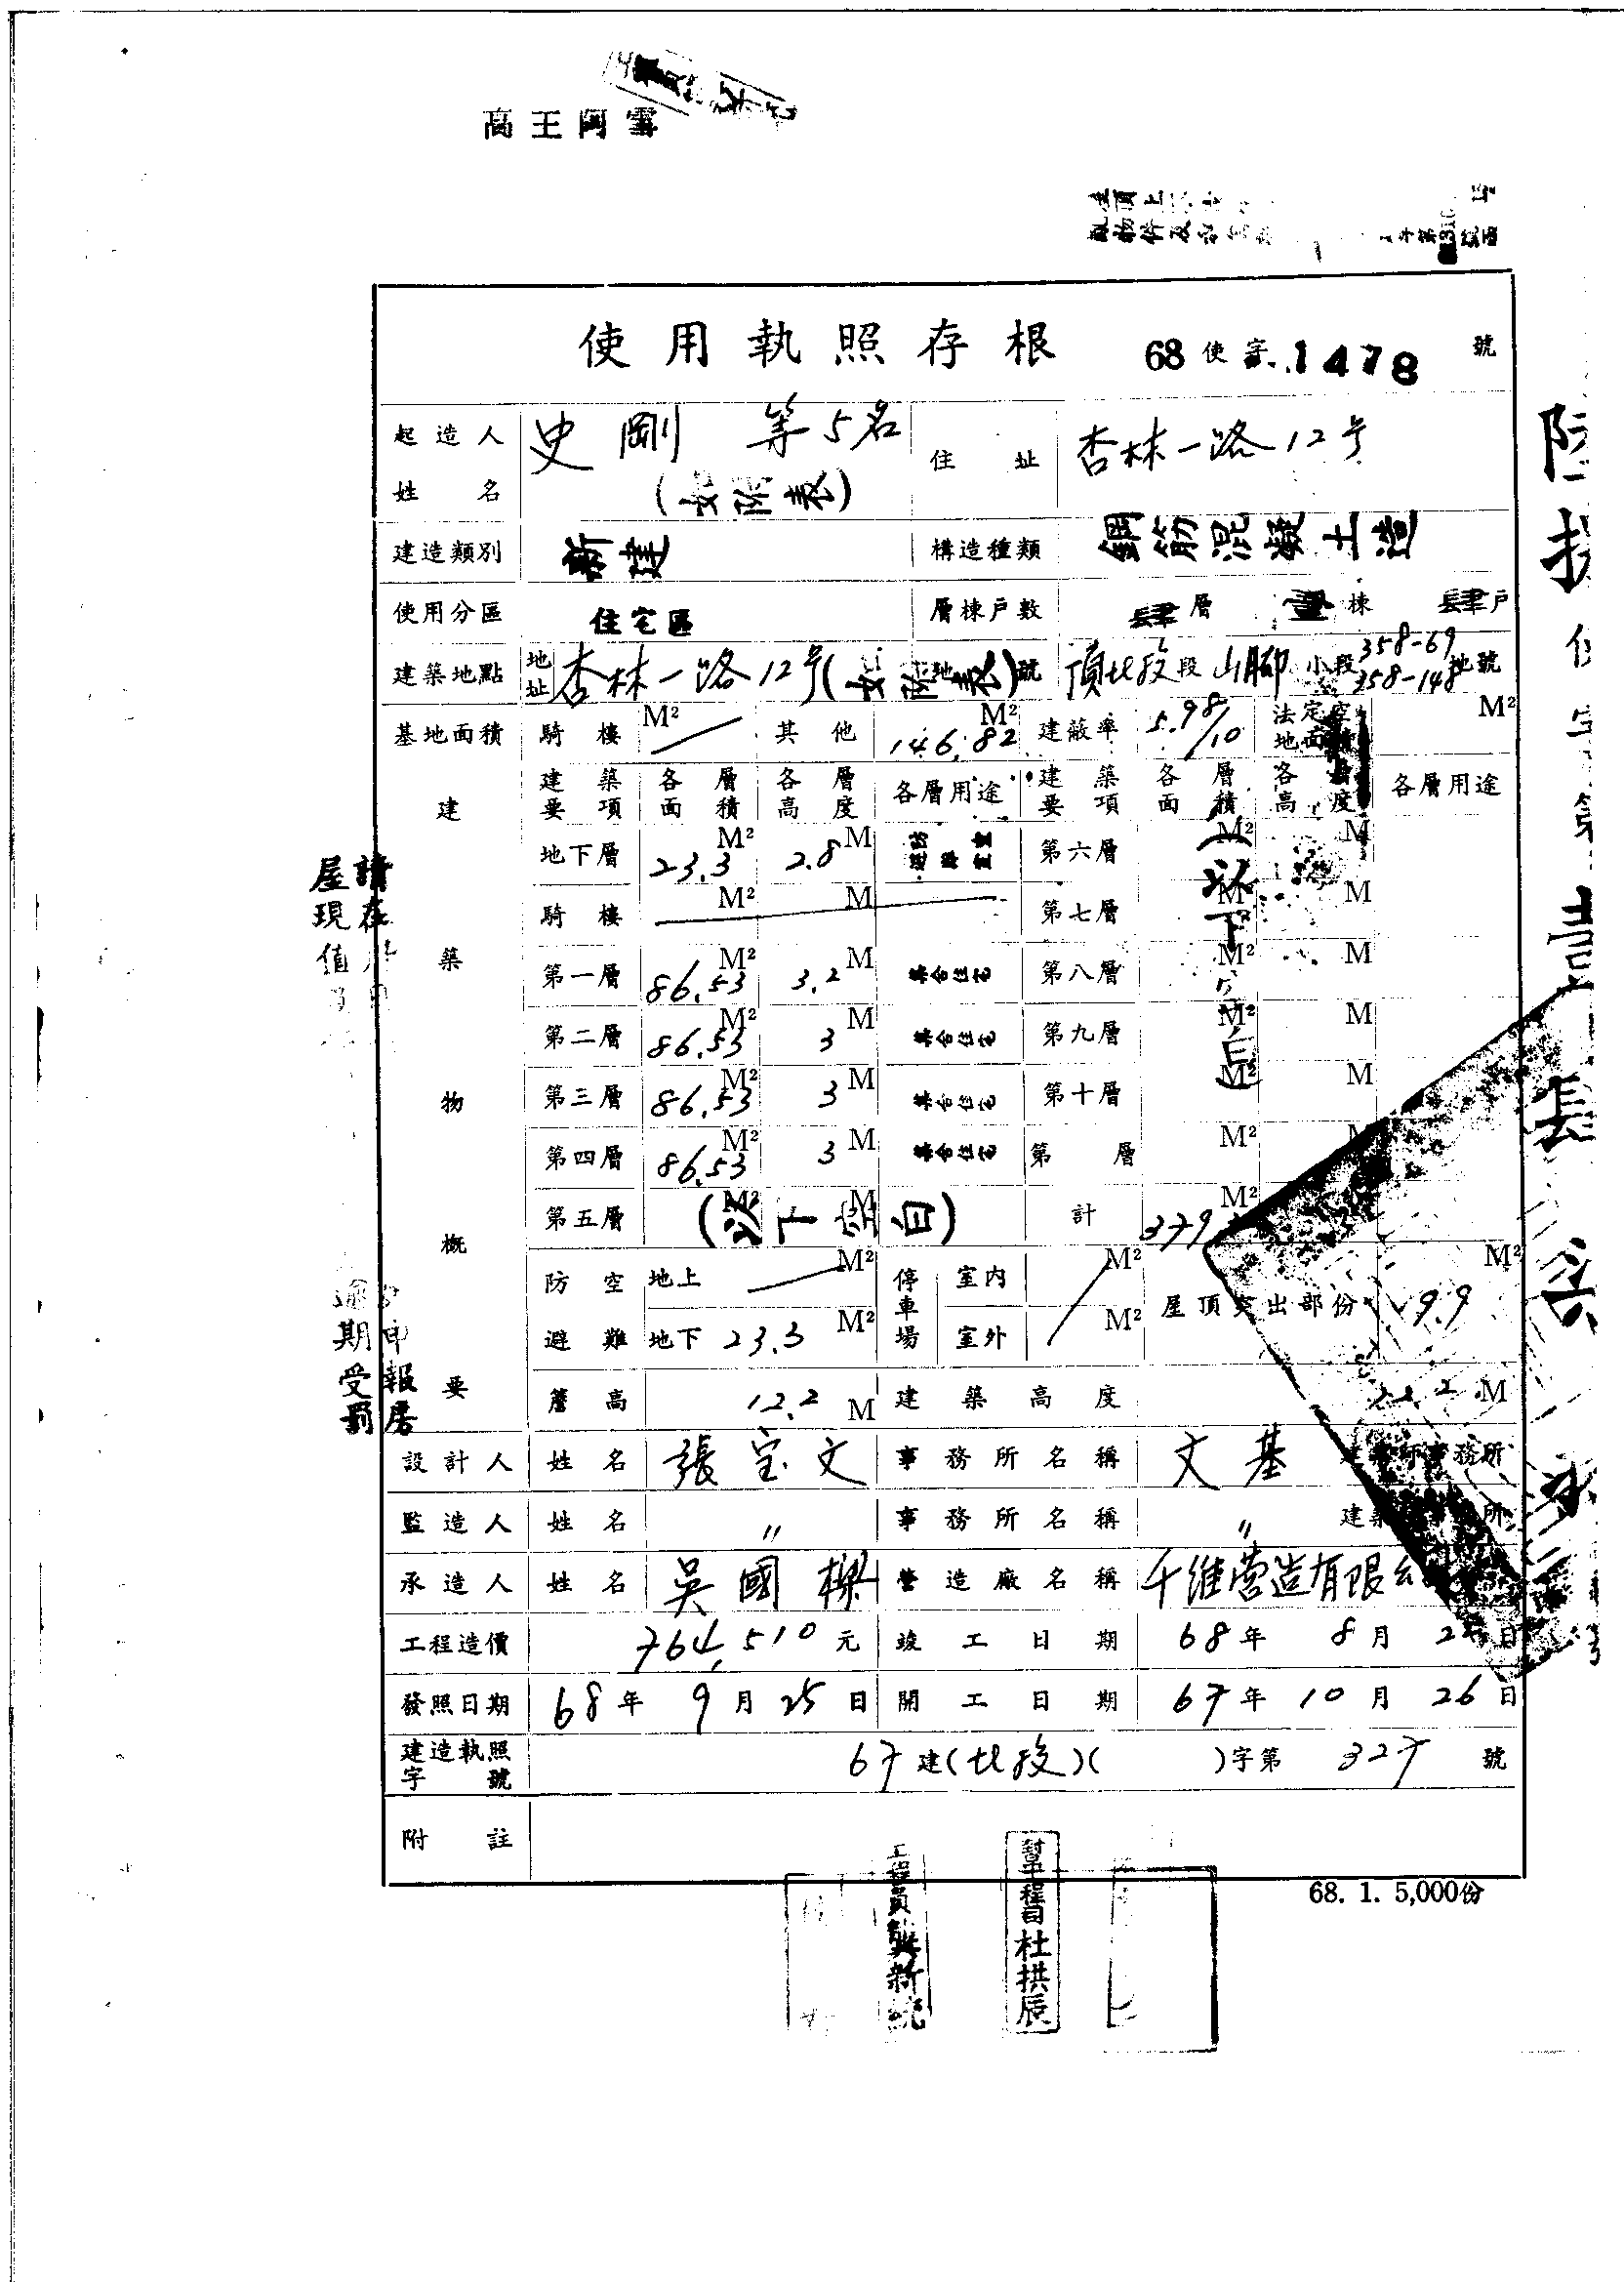 高王阿雪
使用執照存根 68使字 1478 號
起造人姓名 史剛 等5名 (如附表) 住址 杏林一路12号
建造類別 新建 構造種類 鋼筋混凝土造
使用分區 住宅區 層棟戶數 肆層 壹棟 肆戶
建築地點 地址 杏林一路12号(如附表) 地號 頂北投段 山腳小段 358-69 358-148 地號
基地面積 騎樓 M² 其他 146.82 M² 建蔽率 5.98/10 法定空地面積 M²
建築物概要
建築要項 各層面積 各層高度 各層用途 建築要項 各層面積 各層高度 各層用途
地下層 23.3 M² 2.8 M 第六層 M² M
騎樓 M² M 第七層 M² M
第一層 86.53 M² 3.2 M 集合住宅 第八層 M² M
第二層 86.53 M² 3 M 集合住宅 第九層 M² M
第三層 86.53 M² 3 M 集合住宅 第十層 M² M
第四層 86.53 M² 3 M 集合住宅 第 層 M²
第五層 M² M (以下空白) 計 379 M²
(以下空白)
防空避難 地上 M² 停車場 室內 M² 屋頂突出部份 9.9 M²
地下 23.3 M² 室外 M²
簷高 12.2 M 建築高度 M
設計人 姓名 張宝文 事務所名稱 文基 建築師事務所
監造人 姓名 〃 事務所名稱 〃 建築師事務所
承造人 姓名 吳國樑 營造廠名稱 千維营造有限公
工程造價 764,510元 竣工日期 68年 8月 日
發照日期 68年 9月 25日 開工日期 67年 10月 26日
建造執照字號 67建(北投)( )字第 327 號
附註
68. 1. 5,000份
請
屋現值
逾期受罰
申報房
杜拱辰